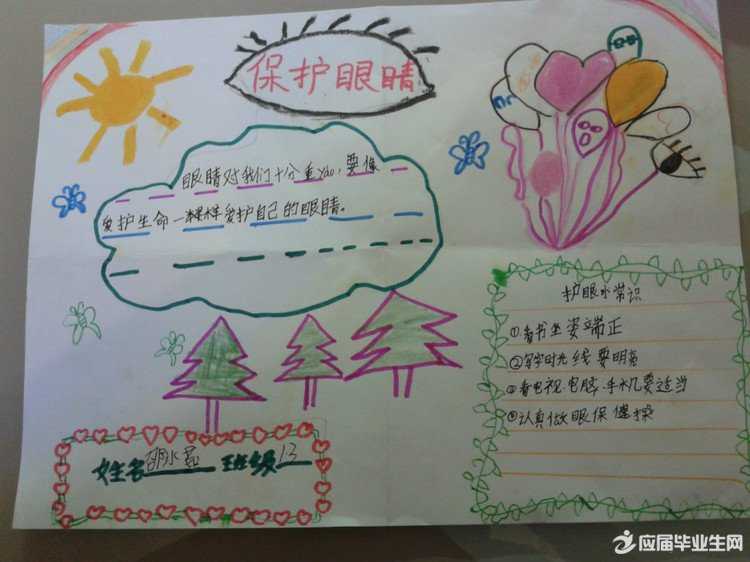 保护眼睛
眼睛对我们十分重yao,要像
爱护生命一样爱护自己的眼睛。
护眼小常识
①看书坐姿端正
②写字时光线要明亮
③看电视.电脑.手机要适当
④认真做眼保健操
姓名 班级 13
应届毕业生网